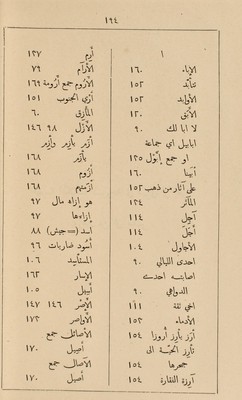 ١٩٤
ا
الإباء ١٦٠
تتأبّد ١٥٢
الأوابد ١٥٢
الأبق ١٢٠
لا ابا لك ٩٠
ابابيل أي جماعة
او جمع إبّول ١٢٥
أبينا ١٦٠
على آثار من ذهب ١٥٢
المآثر ١٢٤
آجِل ١١٤
أجَلّ ١١٤
الأجاول ١٠٤
احدى الليالي ٩٠
اصابته احدى
الدواهي ٩٠
اخي ثقة ١١١
الأدماء ١٥٢
أرَز يأرِز أروزا ١٥٤
تأرز الحيّة الى
جحرها ١٥٤
آرزة الفقارة ١٥٤
أرِم ١٢٧
الآرام ٧٩
الأروم جمع أرومة ١٦٩
أري الجنوب ١٥١
المأزق ٦٠
الأزل ٩٨ ١٤٦
أزَم يأزِم وأزِم
يأزَم ١٦٨
أزوم ١٦٨
أزمتهم ١٦٨
هو إزاء مال ٩٧
إزاءها ٩٧
اسد (= جيش) ٨٨
أسُود ضاريات ٩٦
المستأسد ١٠٦
الإسار ١٦٢
أسيل ١٠٥
الأصر ١٤٦ ١٤٧
الأواصر ١٧٣
الأصائل جمع
أصيل ١٧٠
الآصال جمع
أصيل ١٧٠